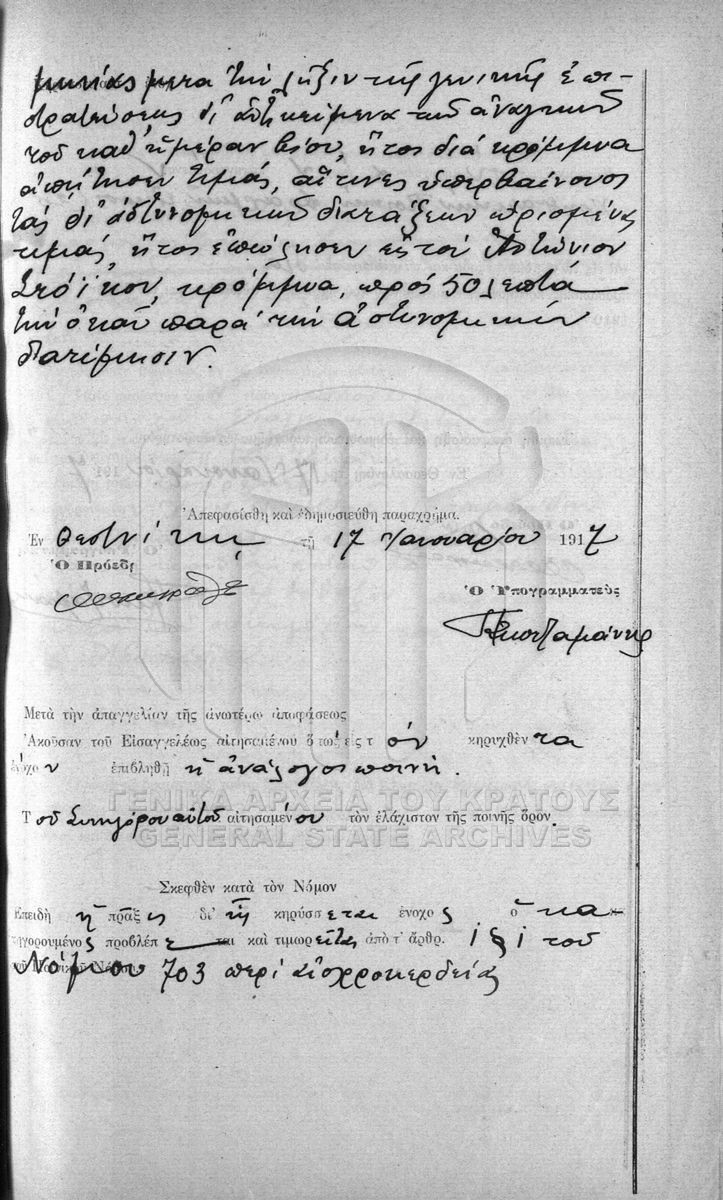 μηνίας μετὰ τὴν λῆξιν τῆς γενικῆς ἐπι-
στρατεύσεως δι' ἀντικείμενα τῶν ἀναγκῶν
τοῦ καθ' ἡμέραν βίου, ἤτοι διὰ κρόμμυα
ἀπῄτησεν τιμάς, αἵτινες ὑπερβαίνουσι
τὰς δι' ἀστυνομικῶν διατάξεων ὡρισμένας
τιμάς, ἤτοι ἐπώλησεν εἰς τὸν Ἀντώνιον
κρόμμυα, πρὸς 50 λεπτὰ
τὴν ὀκᾶν παρὰ τὴν ἀστυνομικὴν
διατίμησιν.
Ἀπεφασίσθη καὶ ἐδημοσιεύθη παραχρῆμα.
Ἐν Θεσ/νίκῃ τῇ 17 Ἰανουαρίου 1917
Ὁ Πρόεδρ
Ὁ Ὑπογραμματεὺς
Μετὰ τὴν ἀπαγγελίαν τῆς ἀνωτέρω ἀποφάσεως
Ἀκοῦσαν τοῦ Εἰσαγγελέως αἰτησαμένου ὅπως εἰς τὸν κηρυχθέντα
ἔνοχον ἐπιβληθῇ ἡ ἀνάλογος ποινή.
Τοῦ Συνηγόρου αὐτοῦ αἰτησαμένου τὸν ἐλάχιστον τῆς ποινῆς ὅρον.
ΓΕΝΙΚΑ ΑΡΧΕΙΑ ΤΟΥ ΚΡΑΤΟΥΣ
GENERAL STATE ARCHIVES
Σκεφθὲν κατὰ τὸν Νόμον
Ἐπειδὴ ἡ πρᾶξις δι' ἣν κηρύσσεται ἔνοχος ὁ κα-
τηγορουμένος προβλέπεται καὶ τιμωρεῖται ἀπὸ τ' ἄρθρ. 1 § 1 τοῦ
Νόμου 703 περὶ αἰσχροκερδείας